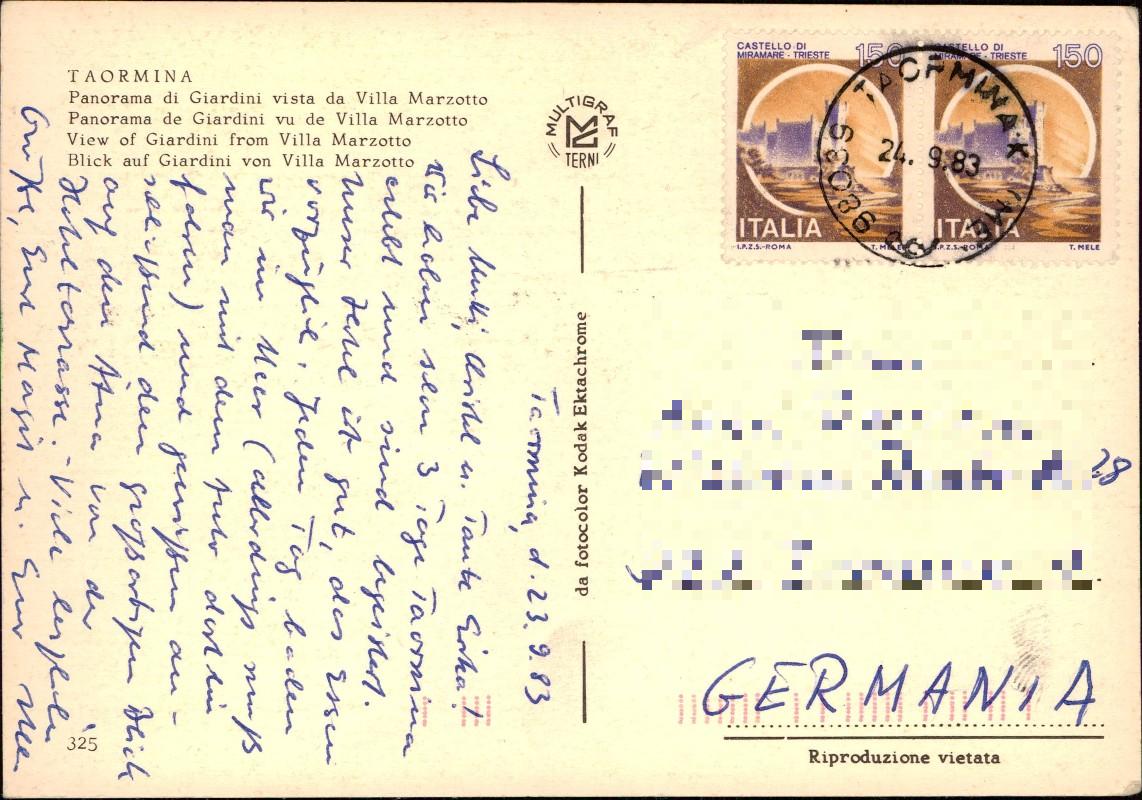 TAORMINA
Panorama di Giardini vista da Villa Marzotto
Panorama de Giardini vu de Villa Marzotto
View of Giardini from Villa Marzotto
Blick auf Giardini von Villa Marzotto
MULTIGRAF
TERNI
CASTELLO DI
MIRAMARE - TRIESTE
150
ITALIA
I.P.Z.S.-ROMA
T. MELE
CASTELLO DI
MIRAMARE - TRIESTE
150
ITALIA
I.P.Z.S.-ROMA
T. MELE
TAORMINA
24. 9.83
98039
Taormina, d. 23.9.83
Liebe Mutti, Christel u. Tante Erika!
Wir haben schon 3 Tage Taormina
erlebt und sind begeistert.
Unser Hotel ist gut, das Essen
vorzüglich. Jeden Tag baden
wir im Meer (allerdings muß
man mit dem Auto dorthin
fahren) und genießen an-
schließend den großartigen Blick
auf den Ätna von der
Hotelterrasse. Viele herzliche
Grüße, Eure Magis u. Euer
da fotocolor Kodak Ektachrome
28
GERMANIA
Riproduzione vietata
325